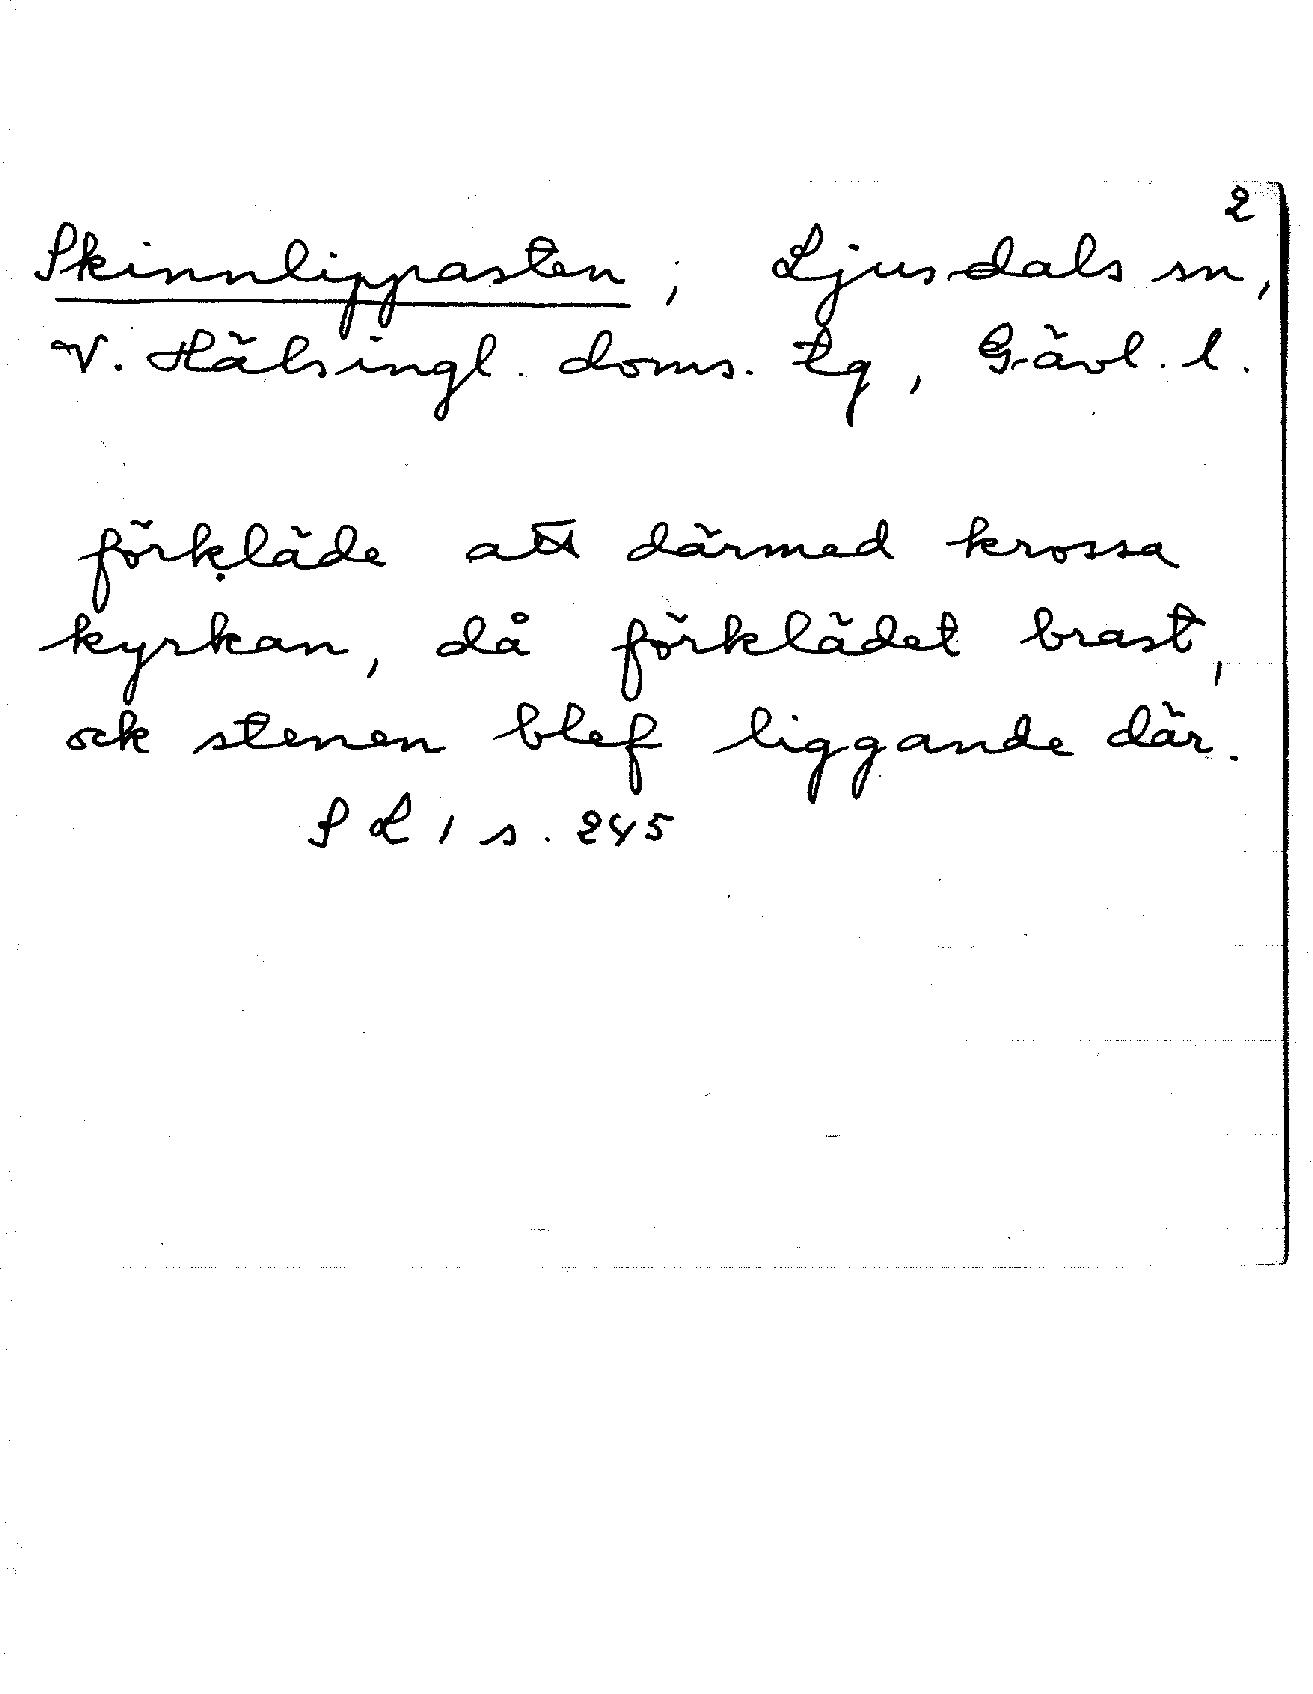 2
Skinnlippasten, Ljusdals sn,
V. Hälsingl. doms. tg, Gävl. l.
förkläde att därmed krossa
kyrkan, då förklädet brast,
ock stenen blef liggande där.
S L 1 s. 245